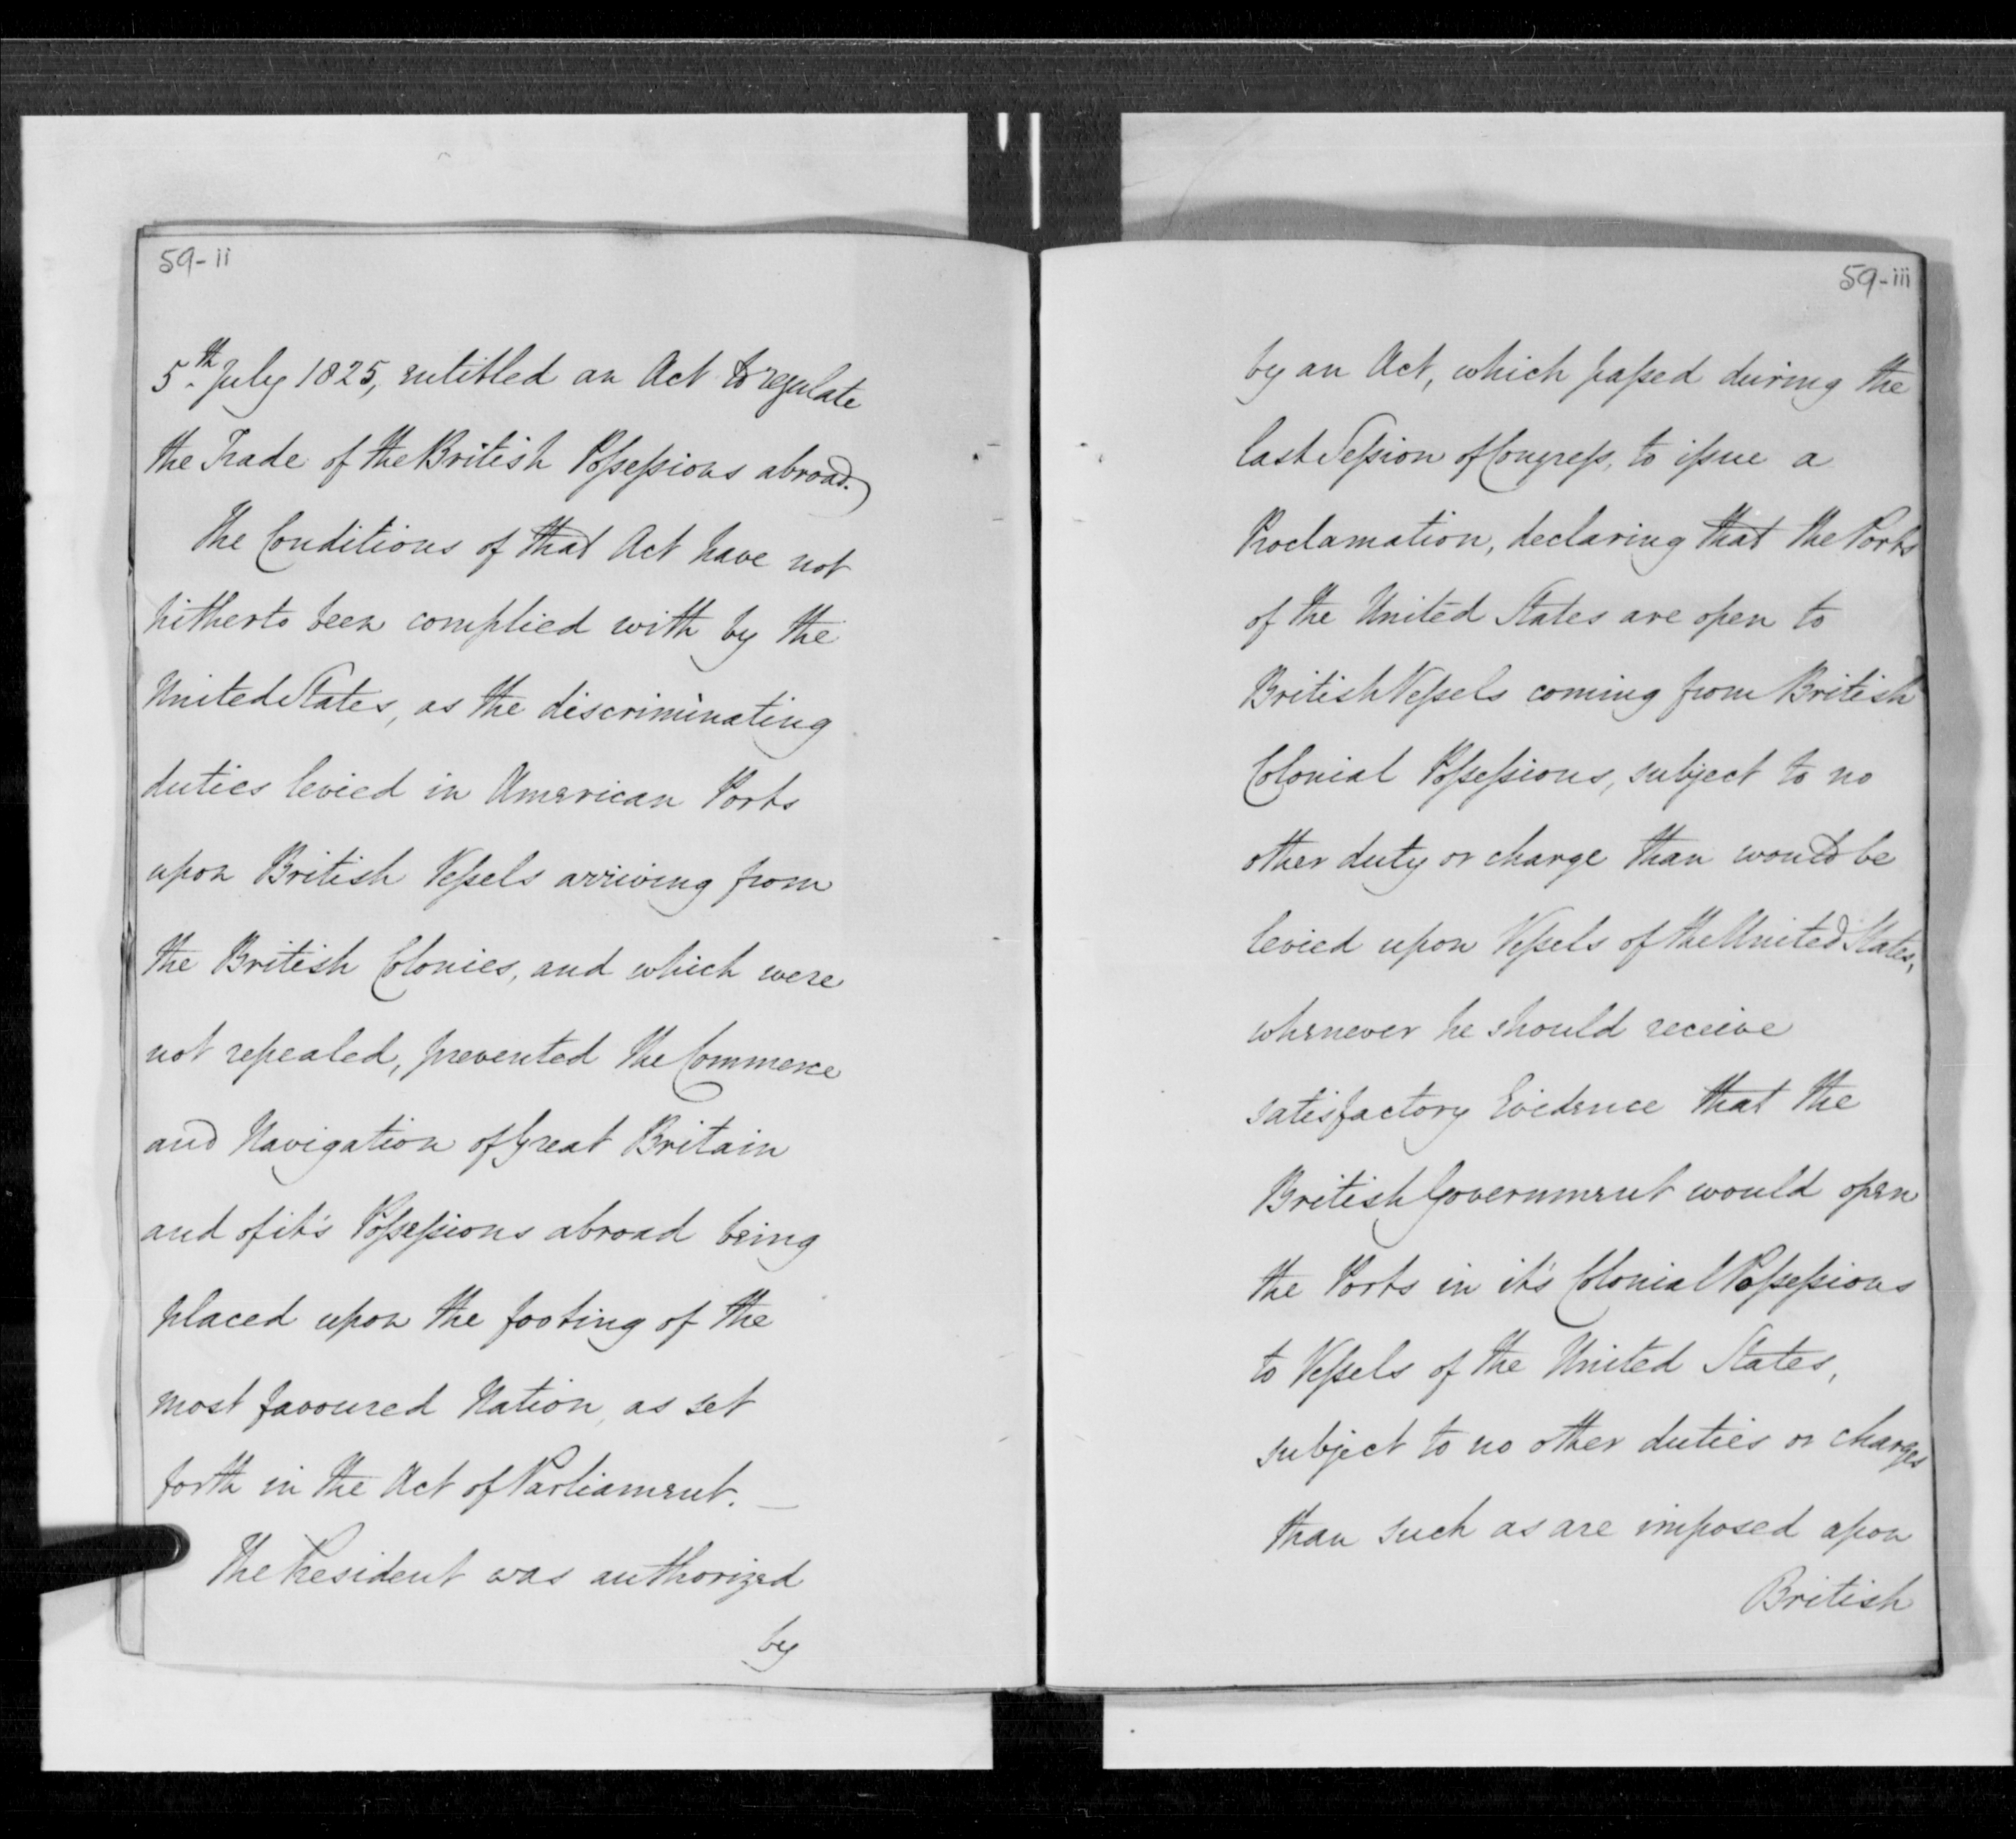 59-ii
5th July 1825, entitled an Act to regulate
the Trade of the British Possessions abroad.)
The Conditions of that Act have not
hitherto been complied with by the
United States, as the discriminating
duties levied in American Ports
upon British Vessels arriving from
the British Colonies, and which were
not repealed, prevented the Commerce
and Navigation of Great Britain
and of it's Possessions abroad being
placed upon the footing of the
most favoured Nation, as set
forth in the Act of Parliament. —
The President was authorized
by
59-iii
by an Act, which passed during the
last Session of Congress, to issue a
Proclamation, declaring that the Ports
of the United States are open to
British Vessels coming from British
Colonial Possessions, subject to no
other duty or charge than would be
levied upon Vessels of the United States,
whenever he should receive
satisfactory Evidence that the
British Government would open
the Ports in it's Colonial Possessions
to Vessels of the United States,
subject to no other duties or charges
than such as are imposed upon
British